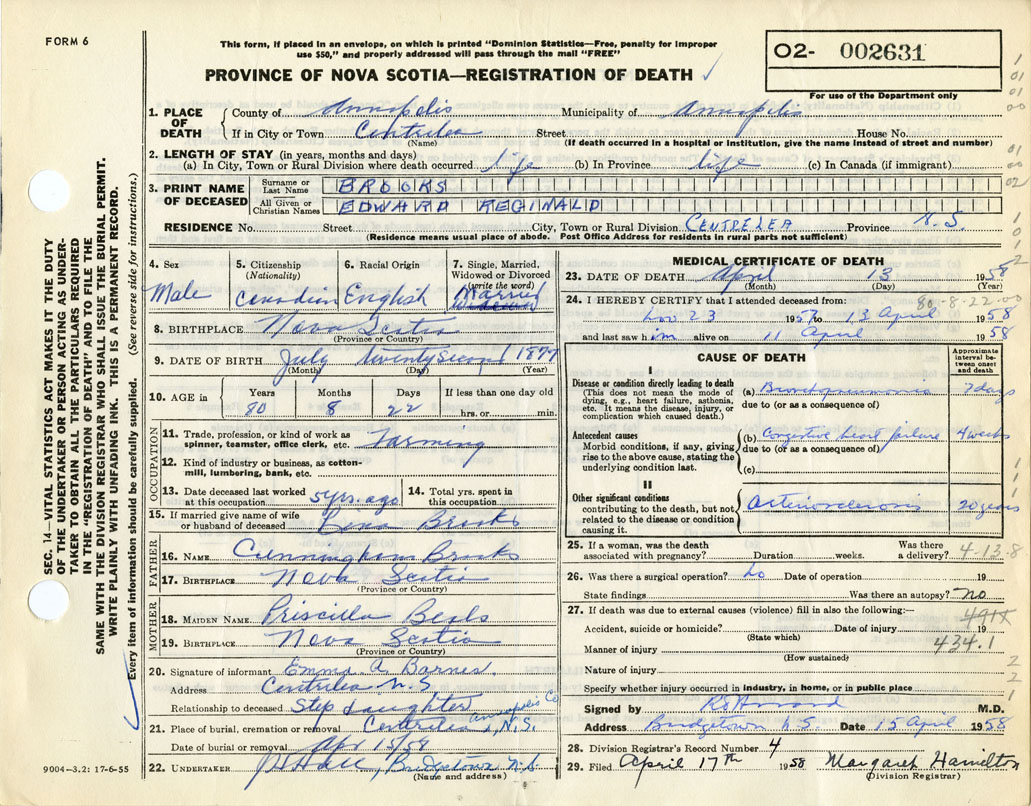 FORM 6
This form, if placed in an envelope, on which is printed "Dominion Statistics—Free, penalty for improper
use $50," and properly addressed will pass through the mail "FREE"
PROVINCE OF NOVA SCOTIA—REGISTRATION OF DEATH ✓
02- 002631
For use of the Department only
SEC. 14—VITAL STATISTICS ACT MAKES IT THE DUTY
OF THE UNDERTAKER OR PERSON ACTING AS UNDER-
TAKER TO OBTAIN ALL THE PARTICULARS REQUIRED
IN THE "REGISTRATION OF DEATH" AND TO FILE THE
SAME WITH THE DIVISION REGISTRAR WHO SHALL ISSUE THE BURIAL PERMIT.
WRITE PLAINLY WITH UNFADING INK. THIS IS A PERMANENT RECORD.
Every item of information should be carefully supplied. (See reverse side for instructions.)
1. PLACE OF DEATH
County of Annapolis Municipality of Annapolis
If in City or Town Centrelea Street House No.
(Name) (If death occurred in a hospital or institution, give the name instead of street and number)
2. LENGTH OF STAY (in years, months and days)
(a) In City, Town or Rural Division where death occurred life (b) In Province life (c) In Canada (if immigrant)
3. PRINT NAME OF DECEASED
Surname or Last Name BROOKS
All Given or Christian Names EDWARD REGINALD
RESIDENCE No. Street City, Town or Rural Division CENTRELEA Province N.S.
(Residence means usual place of abode. Post Office Address for residents in rural parts not sufficient)
4. Sex Male
5. Citizenship (Nationality) Canadian
6. Racial Origin English
7. Single, Married, Widowed or Divorced (write the word) Married
8. BIRTHPLACE Nova Scotia
(Province or Country)
9. DATE OF BIRTH July twenty Second 1877
(Month) (Day) (Year)
10. AGE in Years 80 Months 8 Days 22 If less than one day hrs. or min.
OCCUPATION
11. Trade, profession, or kind of work as spinner, teamster, office clerk, etc. Farming
12. Kind of industry or business, as cotton-mill, lumbering, bank, etc.
13. Date deceased last worked at this occupation 5 yrs. ago
14. Total yrs. spent in this occupation
15. If married give name of wife or husband of deceased Brooks
FATHER
16. NAME Cunningham Brooks
17. BIRTHPLACE Nova Scotia
(Province or Country)
MOTHER
18. MAIDEN NAME Priscilla Beals
19. BIRTHPLACE Nova Scotia
(Province or Country)
20. Signature of informant Emma A Barnes.
Address Centrelea N.S
Relationship to deceased Step daughter
21. Place of burial, cremation or removal Centrelea, Annapolis Co N.S.
Date of burial or removal Apr 15/58
22. UNDERTAKER Bridgetown N.S.
(Name and address)
9004—3.2: 17-6-55
MEDICAL CERTIFICATE OF DEATH
23. DATE OF DEATH April 13 1958
(Month) (Day) (Year)
80-8-22-00
24. I HEREBY CERTIFY that I attended deceased from:
Nov 23 1957 to 13 April 1958
and last saw him alive on 11 April 1958
CAUSE OF DEATH
Approximate interval between onset and death
I
Disease or condition directly leading to death
(This does not mean the mode of dying, e.g., heart failure, asthenia, etc. It means the disease, injury, or complication which caused death.)
(a) Bronchopneumonia 7 days
due to (or as a consequence of)
Antecedent causes
Morbid conditions, if any, giving rise to the above cause, stating the underlying condition last.
(b) Congestive heart failure 4 weeks
due to (or as a consequence of)
(c)
II
Other significant conditions
contributing to the death, but not related to the disease or condition causing it.
Arteriosclerosis 20 years
25. If a woman, was the death associated with pregnancy? Duration weeks. Was there a delivery?
4-13-8
26. Was there a surgical operation? No Date of operation 19
State findings Was there an autopsy? no
27. If death was due to external causes (violence) fill in also the following:—
Accident, suicide or homicide? Date of injury 19
(State which)
Manner of injury 434.1
(How sustained)
Nature of injury
Specify whether injury occurred in industry, in home, or in public place
Signed by M.D.
Address Bridgetown N.S. Date 15 April 1958
28. Division Registrar's Record Number 4
29. Filed April 17th 1958 Margaret Hamilton
(Division Registrar)